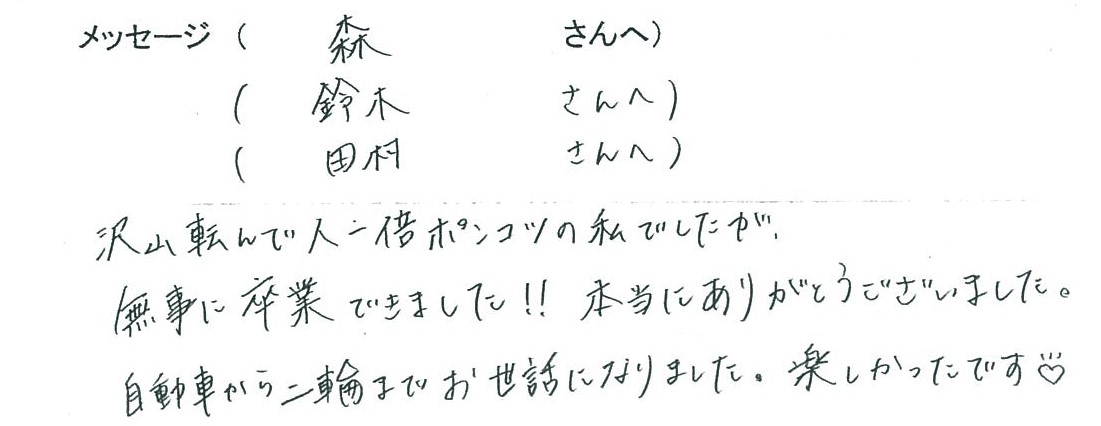 メッセージ( 森 さんへ)
( 鈴木 さんへ)
( 田村 さんへ)
沢山転んで人一倍ポンコツの私でしたが、
無事に卒業できました!! 本当にありがとうございました。
自動車から二輪までお世話になりました。楽しかったです♡